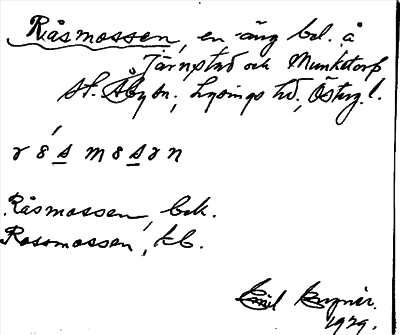 Råsmossen, en äng bel. å
Järnstad och Munkstorp
St. Åby sn, Lysings hd, Österg. l.
rósmosən
Råsmossen, bek.
Rosomossen, kb.
Emil
1929.